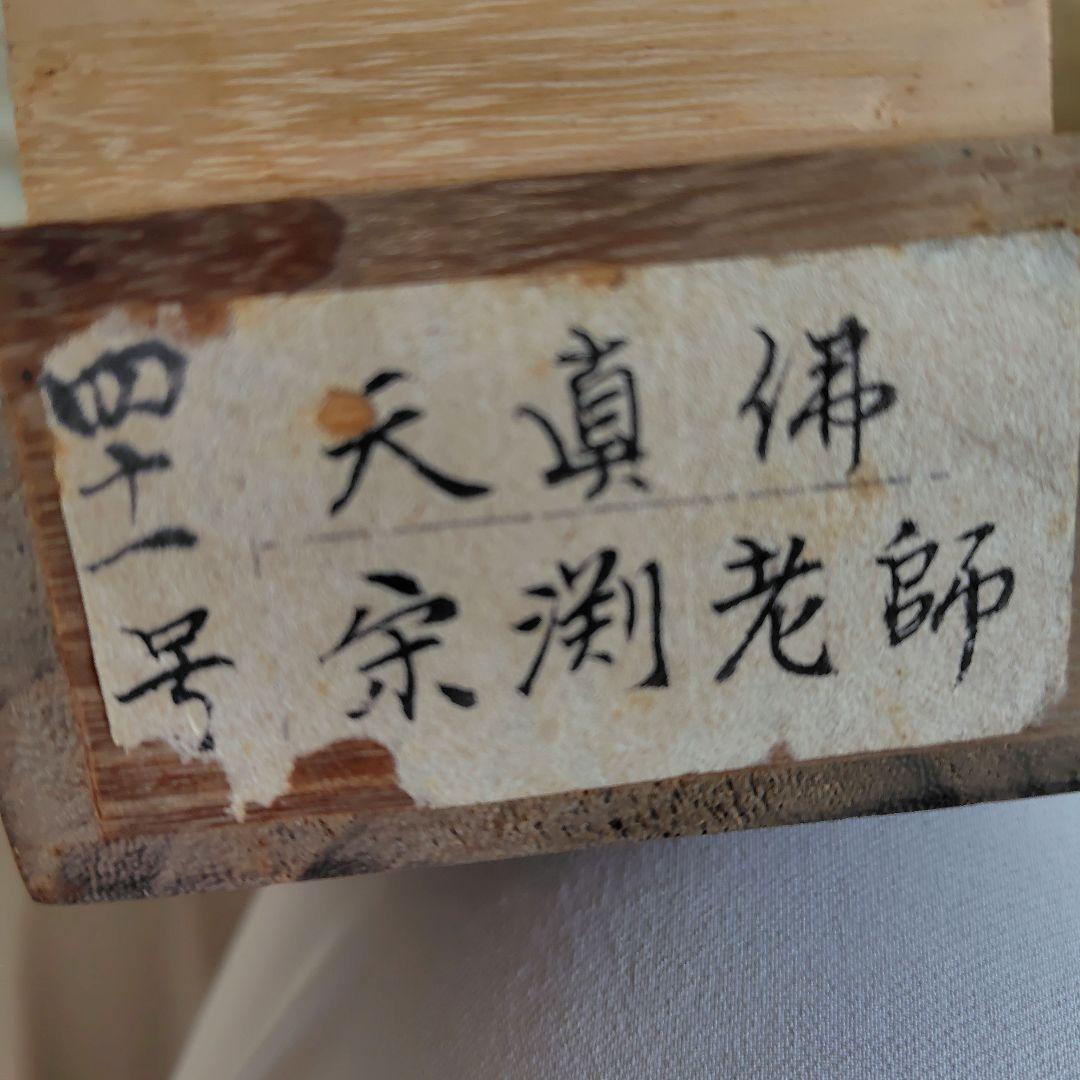 四十一号
天真佛
宗渕老師